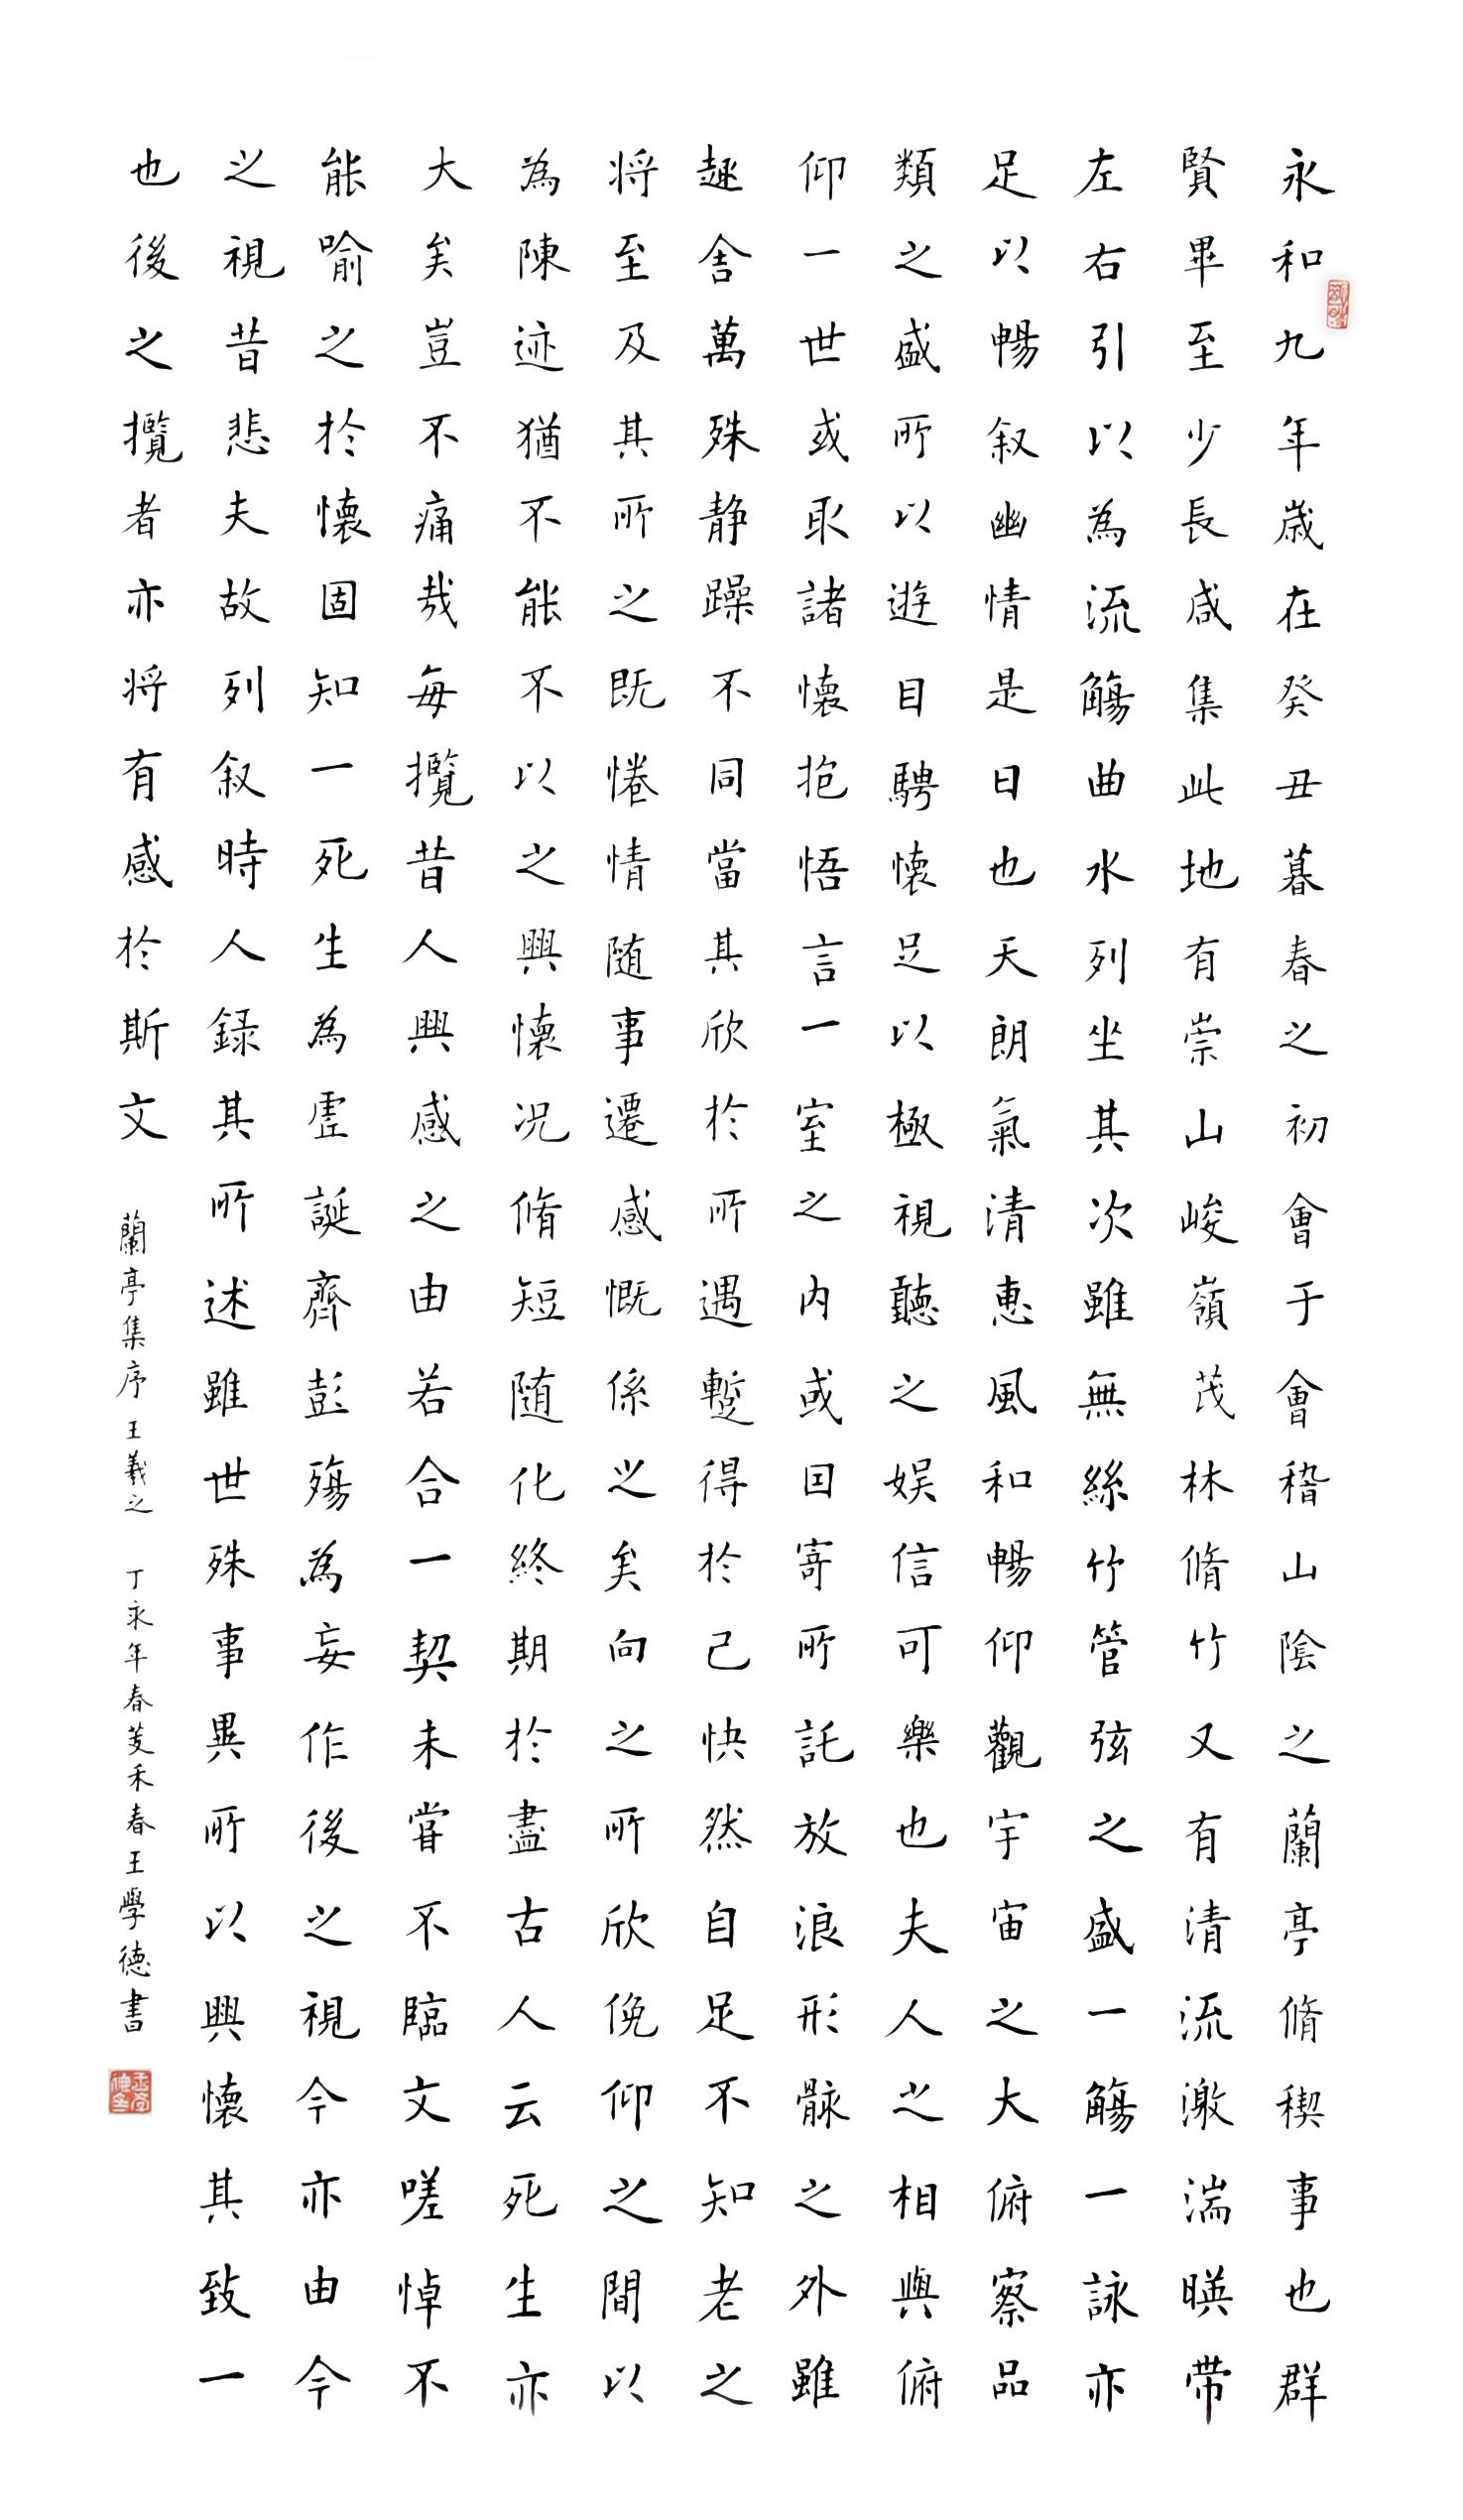 永和九年歳在癸丑暮春之初會于會稽山陰之蘭亭脩稧事也群
賢畢至少長咸集此地有崇山峻嶺茂林脩竹又有清流激湍暎带
左右引以為流觴曲水列坐其次雖無絲竹管弦之盛一觴一詠亦
足以暢叙幽情是日也天朗氣清惠風和暢仰觀宇宙之大俯察品
類之盛所以遊目騁懷足以極視聽之娱信可樂也夫人之相與俯
仰一世或取諸懷抱悟言一室之内或因寄所託放浪形骸之外雖
趣舍萬殊静躁不同當其欣於所遇蹔得於己快然自足不知老之
将至及其所之既惓情随事遷感慨係之矣向之所欣俛仰之間以
為陳迹猶不能不以之興懷况脩短随化終期於盡古人云死生亦
大矣豈不痛哉每攬昔人興感之由若合一契未甞不臨文嗟悼不
能喻之於懷固知一死生為虛誕齊彭殤為妄作後之視今亦由今
之視昔悲夫故列叙時人録其所述雖世殊事異所以興懷其致一
也後之攬者亦将有感於斯文
蘭亭集序 王羲之 丁永年春禾春王學德書